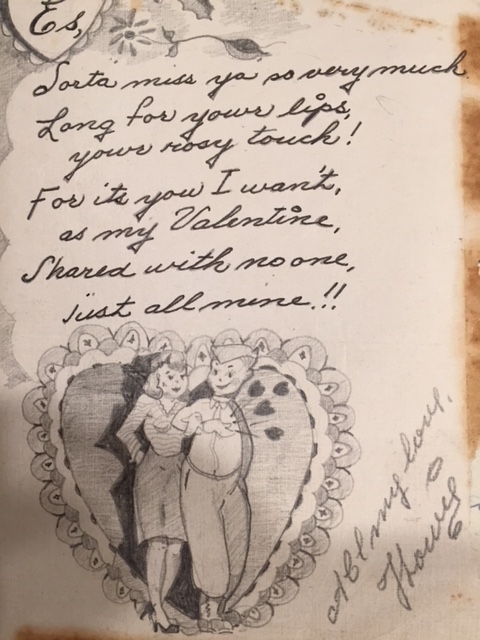 Es,
Sorta miss ya so very much
Long for your lips,
your rosy touch!
For its you I want,
as my Valentine,
Shared with no one,
just all mine.!!
All my love,
Howie